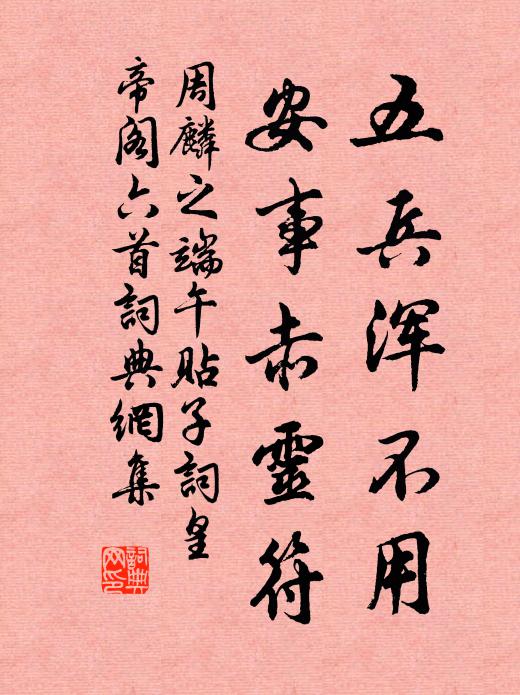 五兵浑不用
安事赤靈符
周麟之端午贴子詞皇
帝阁六首詞典網集
詞典
网印